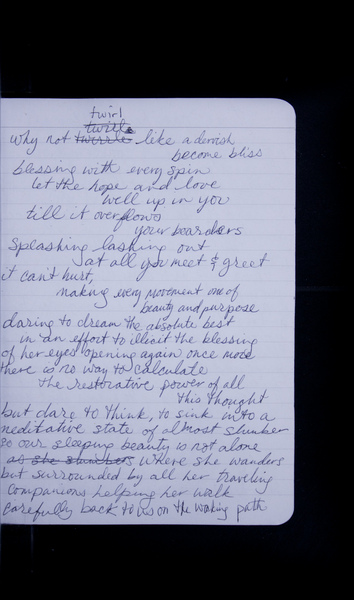 twirl
twirle
why not twirrle like a dervish
become bliss
blessing with every spin
let the hope and love
well up in you
till it overflows
your boarders
splashing lashing out
at all you meet & greet
it can't hurt,
making every movement one of
beauty and purpose
daring to dream the absolute best
in an effort to illicit the blessing
of her eyes opening again once more
there is no way to calculate
the restorative power of all
this thought
but dare to think, to sink into a
meditative state of almost slumber
so our sleeping beauty is not alone
as she slumbers where she wanders
but surrounded by all her traveling
companions helping her walk
carefully back to us on the waking path